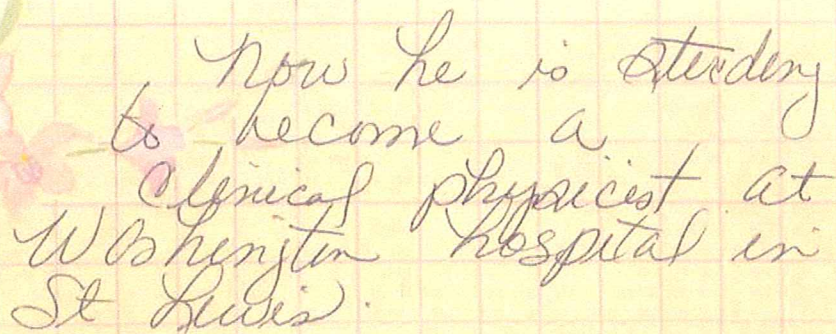 Now he is studeny
to become a
Clinical physicist at
Washington hospital in
St Lewis.